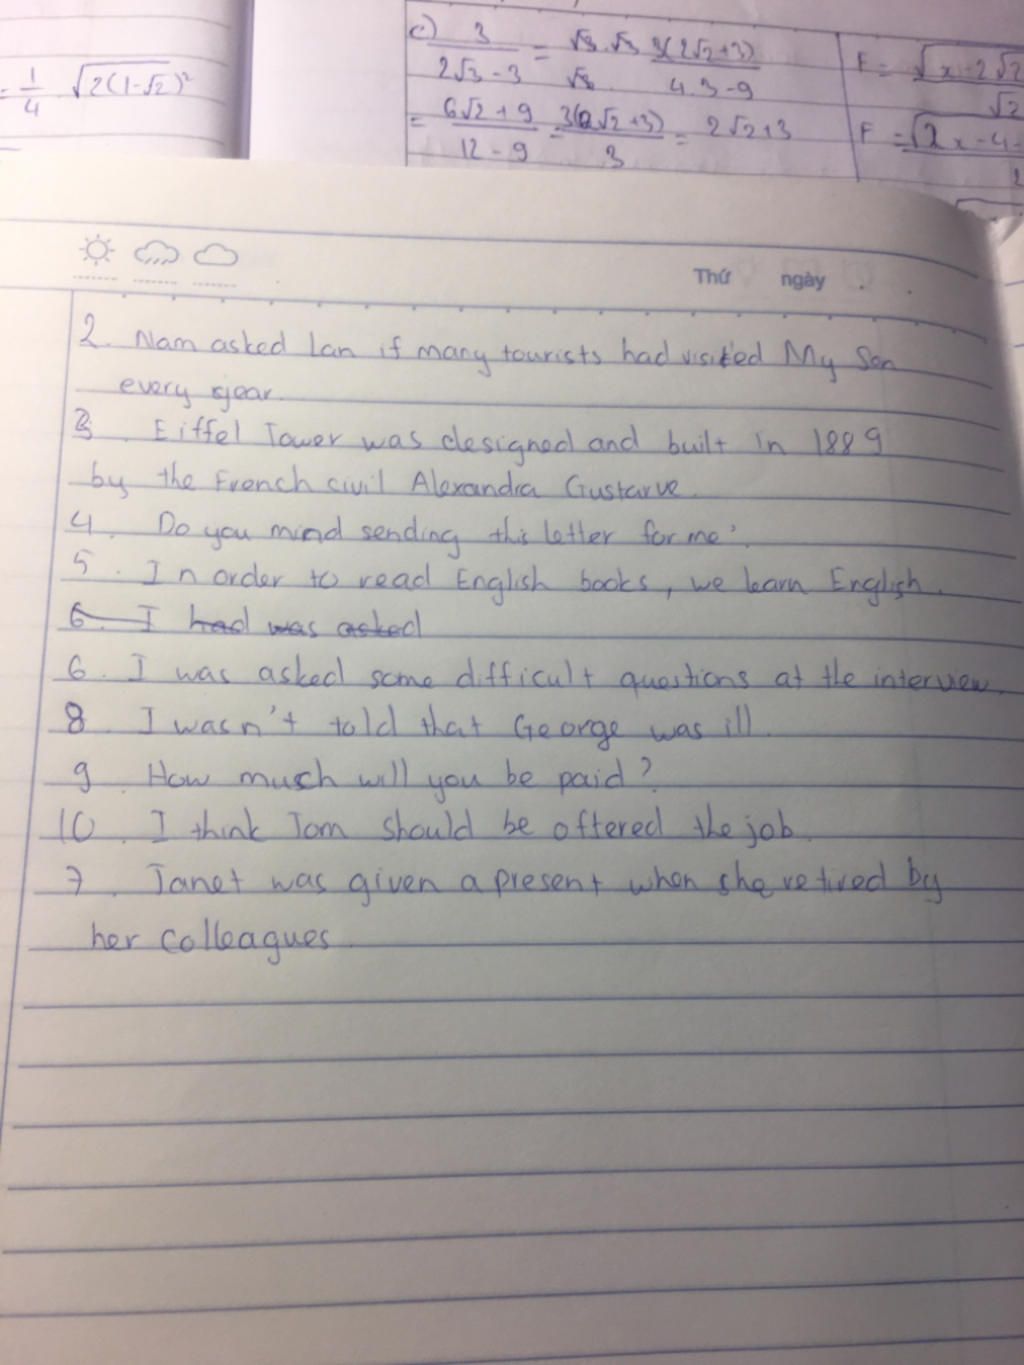 c) 3 / (2√3 - 3) = √3 . √3 / √3 3(2√2+3) / (4.3-9)
= (6√2 + 9) / (12 - 9) = 3(2√2+3) / 3 = 2√2+3
= 1/4 √2(1-√2)²
F = √x-2√2 / √2
F = √2x-4- / 2
Thứ ngày
2. Nam asked Lan if many tourists had visited My Son
every year.
3. Eiffel Tower was designed and built in 1889
by the French civil Alexandra Gustarve.
4. Do you mind sending this letter for me?
5. In order to read English books, we learn English.
6. I had was asked
6. I was asked some difficult questions at the interview.
8. I wasn't told that George was ill.
9. How much will you be paid?
10. I think Tom should be offered the job.
7. Janet was given a present when she retired by
her colleagues.